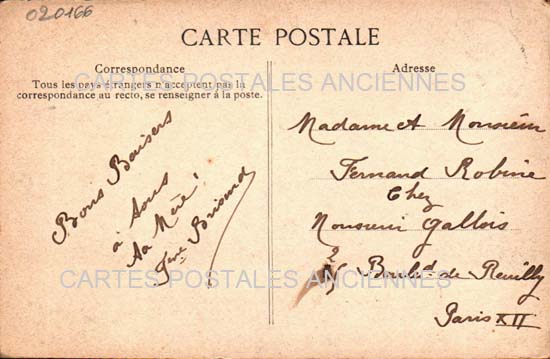 020166
CARTE POSTALE
Correspondance
Tous les pays étrangers n'acceptent pas la
correspondance au recto, se renseigner à la poste.
Adresse
CARTES POSTALES ANCIENNES
Bons Baisers
à tous
Ta Mère!
Madame et Monsieur
Fernand Robine
Chez
Monsieur Gallois
Bould de Reuilly
Paris XII
CARTES POSTALES ANCIENNES